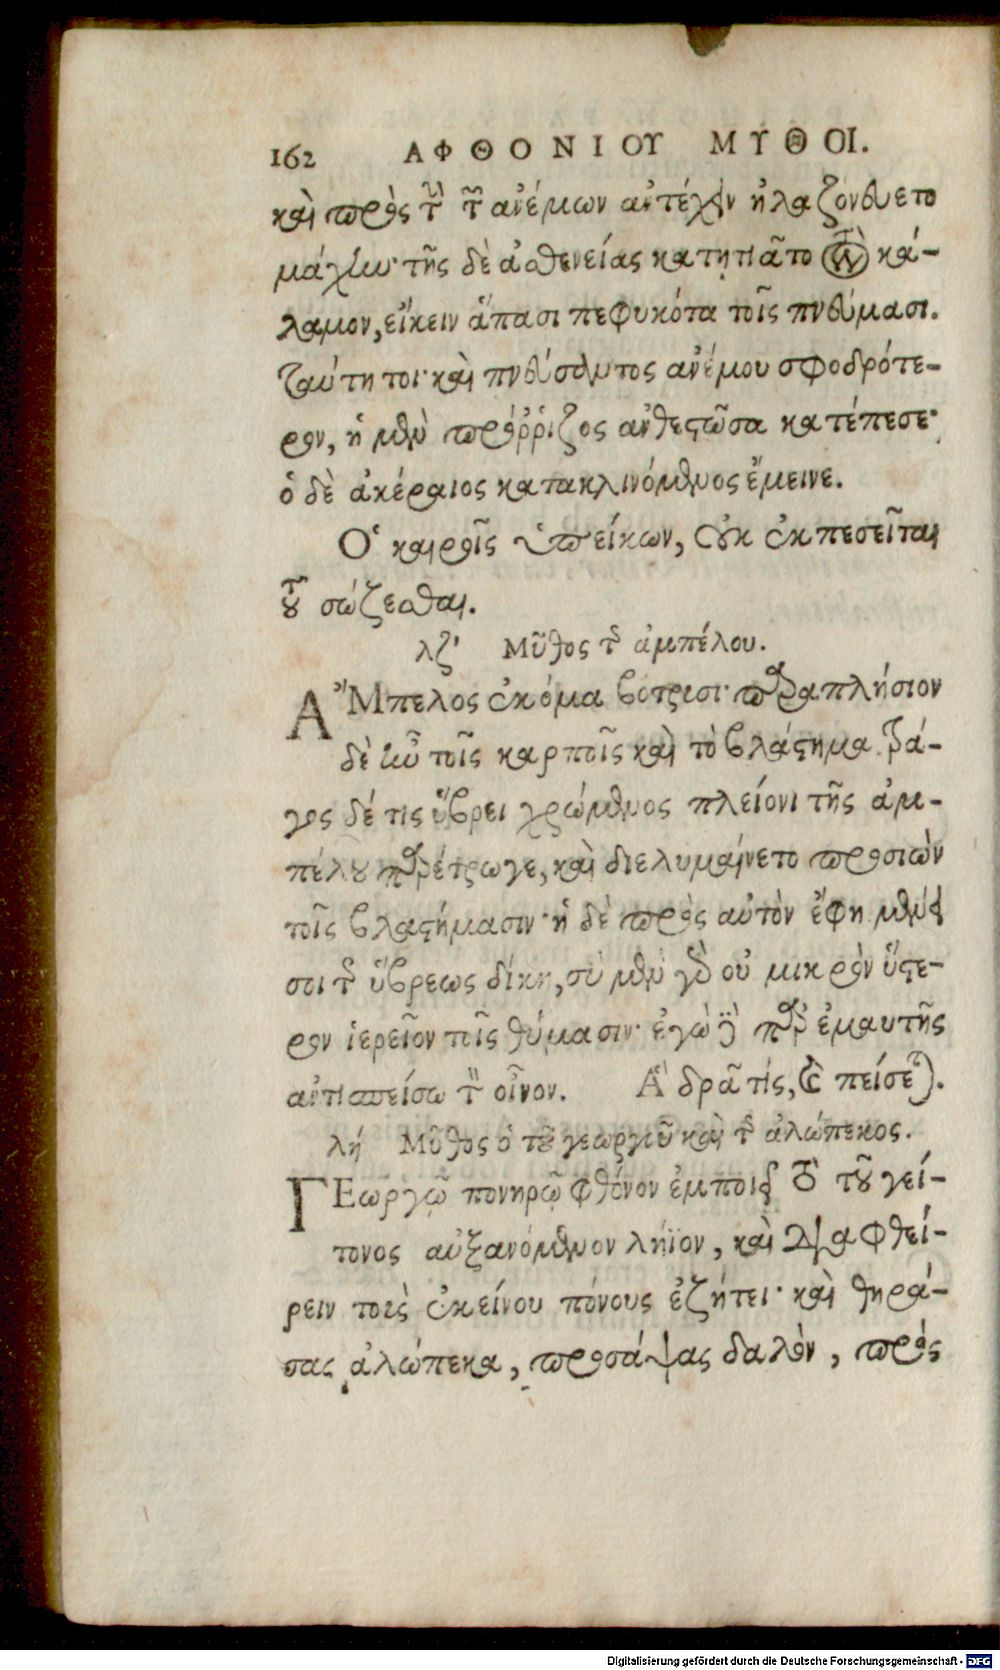 162 ΑΦΘΟΝΙΟΥ ΜΥΘΟΙ.
καὶ πρὸς τὴν τῶν ἀνέμων ἀντέχειν ἠλαζονεύετο
μάχην· τῆς δὲ ἀσθενείας κατῃτιᾶτο τὸν κά-
λαμον, εἴκειν ἅπασι πεφυκότα τοῖς πνεύμασι.
ταύτῃ τοι· καὶ πνεύσαντος ἀνέμου σφοδρότε-
ρον, ἡ μὲν πρόῤῥιζος ἀνθεστῶσα κατέπεσε·
ὁ δὲ ἀκέραιος κατακλινόμενος ἔμεινε.
Ὁ καιροῖς ὑπείκων, οὐκ ἐκπεσεῖται
τοῦ σώζεσθαι.
λζ' Μῦθος τῆς ἀμπέλου.
ἌΜπελος ἐκόμα βότρισι· παραπλήσιον
δὲ ἦν τοῖς καρποῖς καὶ τὸ βλάστημα. τρά-
γος δέ τις ὕβρει χρώμενος πλείονι τῆς ἀμ-
πέλου παρέτρωγε, καὶ διελυμαίνετο προσιὼν
τοῖς βλαστήμασιν· ἡ δὲ πρὸς αὐτὸν ἔφη μένει
σοι τῆς ὕβρεως δίκη, σὺ μὲν γὰρ οὐ μικρὸν ὕστε-
ρον ἱερεῖον τοῖς θύμασιν· ἐγὼ δὲ παρ' ἐμαυτῆς
ἀντισπείσω τὸν οἶνον. Ἃ δρᾶ τίς, καὶ πείσεται.
λή Μῦθος ὁ τοῦ γεωργοῦ καὶ τῆς ἀλώπεκος.
ΓΕωργῷ πονηρῷ φθόνον ἐμποιεῖ τὸ τοῦ γεί-
τονος αὐξανόμενον λήϊον, καὶ διαφθεί-
ρειν τοὺς ἐκείνου πόνους ἐζήτει· καὶ θηρά-
σας ἀλώπεκα, προσάψας δαλὸν, πρὸς
Digitalisierung gefördert durch die Deutsche Forschungsgemeinschaft - DFG